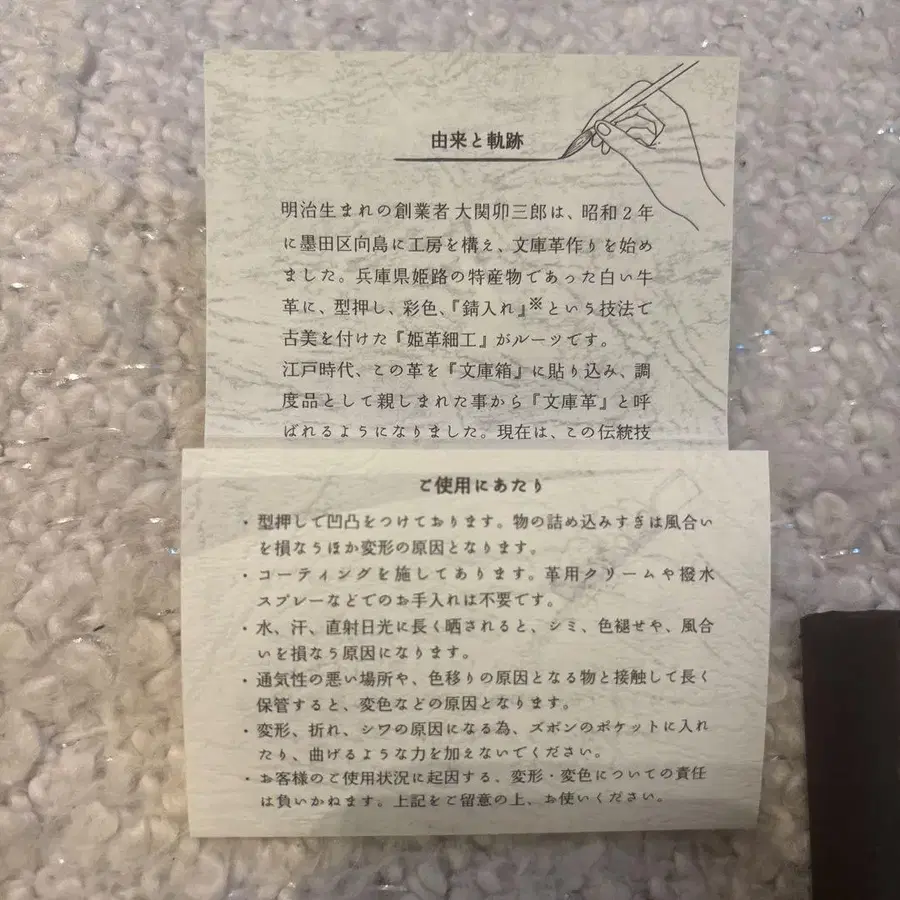 由来と軌跡
明治生まれの創業者 大関卯三郎は、昭和２年
に墨田区向島に工房を構え、文庫革作りを始め
ました。兵庫県姫路の特産物であった白い牛
革に、型押し、彩色、『錆入れ』※という技法で
古美を付けた『姫革細工』がルーツです。
江戸時代、この革を『文庫箱』に貼り込み、調
度品として親しまれた事から『文庫革』と呼
ばれるようになりました。現在は、この伝統技
ご使用にあたり
・型押しで凹凸をつけております。物の詰め込みすぎは風合い
を損なうほか変形の原因となります。
・コーティングを施してあります。革用クリームや撥水
スプレーなどでのお手入れは不要です。
・水、汗、直射日光に長く晒されると、シミ、色褪せや、風合
いを損なう原因になります。
・通気性の悪い場所や、色移りの原因となる物と接触して長く
保管すると、変色などの原因となります。
・変形、折れ、シワの原因になる為、ズボンのポケットに入れ
たり、曲げるような力を加えないでください。
・お客様のご使用状況に起因する、変形・変色についての責任
は負いかねます。上記をご留意の上、お使いください。